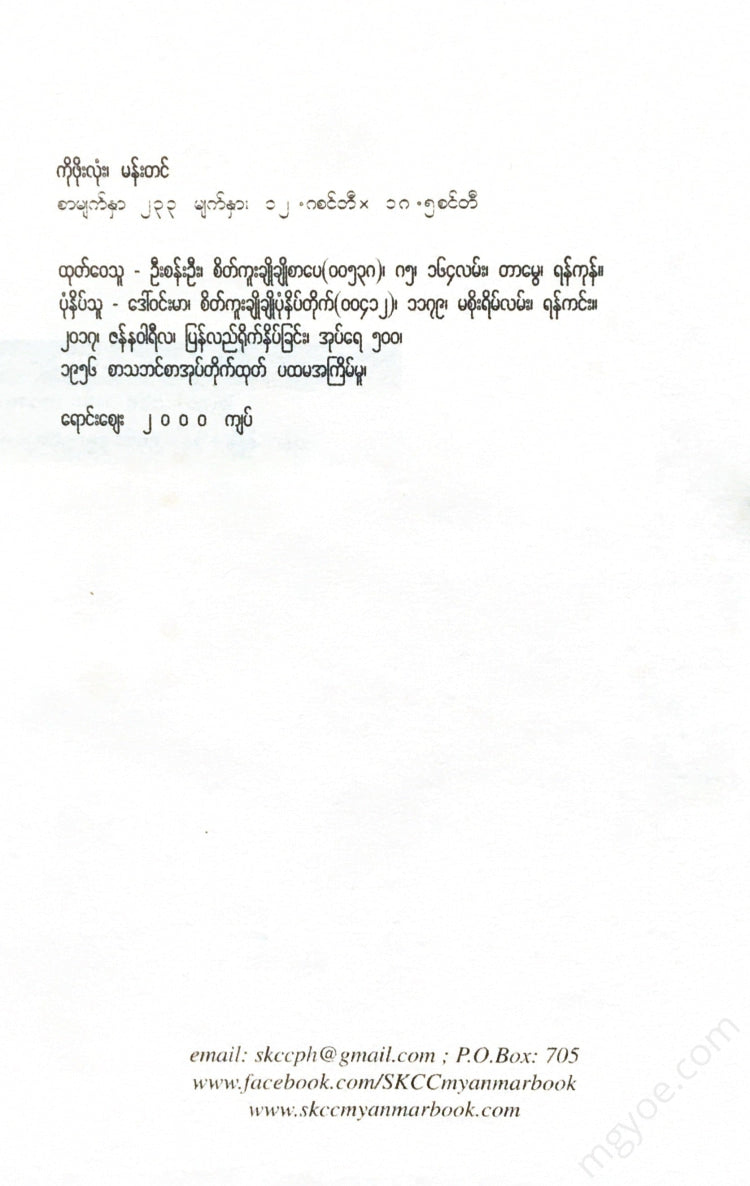 ကိုဖိုးလုံး၊ မန်းတင်
စာမျက်နှာ ၂၃၃ မျက်နှား ၁၂.၈စင်တီ× ၁၈.၅စင်တီ
ထုတ်ဝေသူ - ဦးစန်းဦး၊ စိတ်ကူးချိုချိုစာပေ(၀၀၅၃၈)၊ ၈၅၊ ၁၆၄လမ်း၊ တာမွေ၊ ရန်ကုန်။
ပုံနှိပ်သူ - ဒေါ်ဝင်းမာ၊ စိတ်ကူးချိုချိုပုံနှိပ်တိုက်(၀၀၄၁၂)၊ ၁၁၇၉၊ မစိုးရိမ်လမ်း၊ ရန်ကင်း။
၂၀၁၇၊ ဇန်နဝါရီလ၊ ပြန်လည်ရိုက်နှိပ်ခြင်း၊ အုပ်ရေ ၅၀၀၊
၁၉၅၆ စာသဘင်စာအုပ်တိုက်ထုတ် ပထမအကြိမ်မူ၊
ရောင်းဈေး ၂၀၀၀ ကျပ်
email: skccph@gmail.com ; P.O.Box: 705
www.facebook.com/SKCCmyanmarbook
www.skccmyanmarbook.com
mgyoe.com